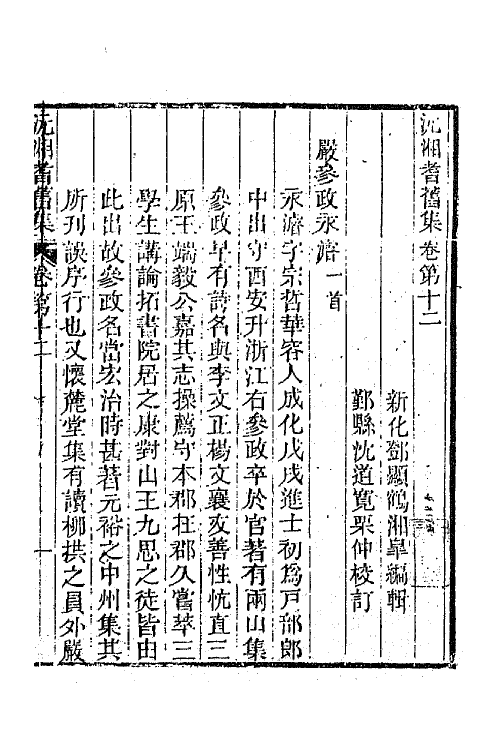 沅湘耆舊集卷第十二
新化鄧顯鶴湘皐編輯
鄞縣沈道寬栗仲校訂
嚴參政永濬一首
永濬字宗哲華容人成化戊戌進士初爲戸部郎
中出守西安升浙江右參政卒於官著有兩山集
參政早有詩名與李文正楊文襄友善性伉直三
原王端毅公嘉其志操薦守本郡在郡久嘗萃三
學生講論拓書院居之康對山王九思之徒皆由
此出故參政名當宏治時甚著元裕之中州集其
所刊誤序行也又懷麓堂集有讀柳拱之員外嚴
沅湘耆舊集 卷第十二 一